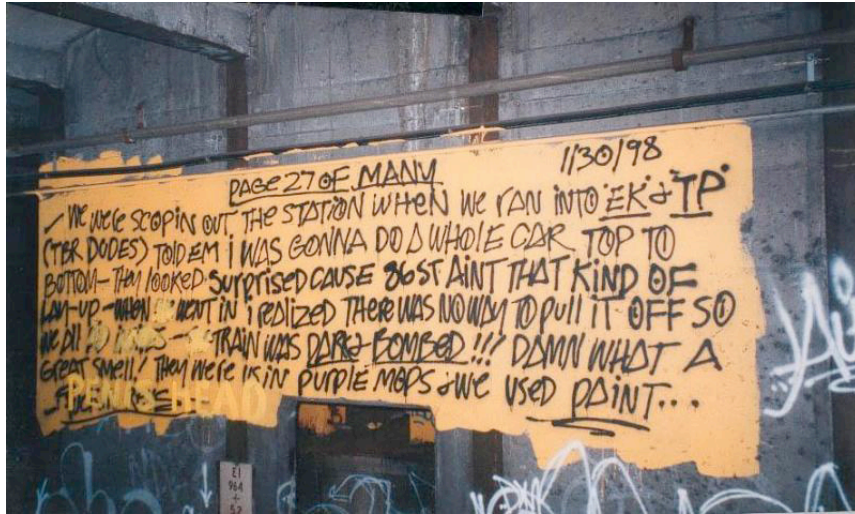 PAGE 27 OF MANY
1/30/98
— WE WERE SCOPIN OUT THE STATION WHEN WE RAN INTO "EK" & "TP"
(TBR DUDES) TOLD EM I WAS GONNA DO A WHOLE CAR TOP TO
BOTTOM — THEY LOOKED SURPRISED CAUSE 86ST AINT THAT KIND OF
LAY-UP — WHEN WE WENT IN I REALIZED THERE WAS NO WAY TO PULL IT OFF SO
WE ALL DID — TRAIN WAS DARK & BOMBED!!! DAMN WHAT A
GREAT SMELL! THEY WERE USIN PURPLE MOPS & WE USED PAINT...
PENIS HEAD
E1
964
+
52